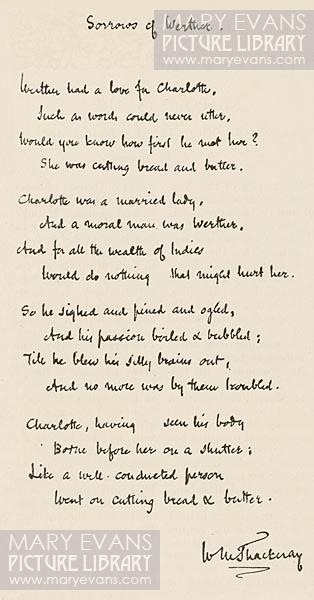 Sorrows of Werther.
MARY EVANS
PICTURE LIBRARY
www.maryevans.com
Werther had a love for Charlotte,
Such as words could never utter,
Would you know how first he met her?
She was cutting bread and butter.
Charlotte was a married lady,
And a moral man was Werther,
And for all the wealth of Indies
Would do nothing that might hurt her.
So he sighed and pined and ogled,
And his passion boiled & bubbled;
Till he blew his silly brains out,
And no more was by them troubled.
Charlotte, having seen his body
Borne before her on a shutter;
Like a well-conducted person
Went on cutting bread & butter.
W M Thackeray
MARY EVANS
PICTURE LIBRARY
www.maryevans.com